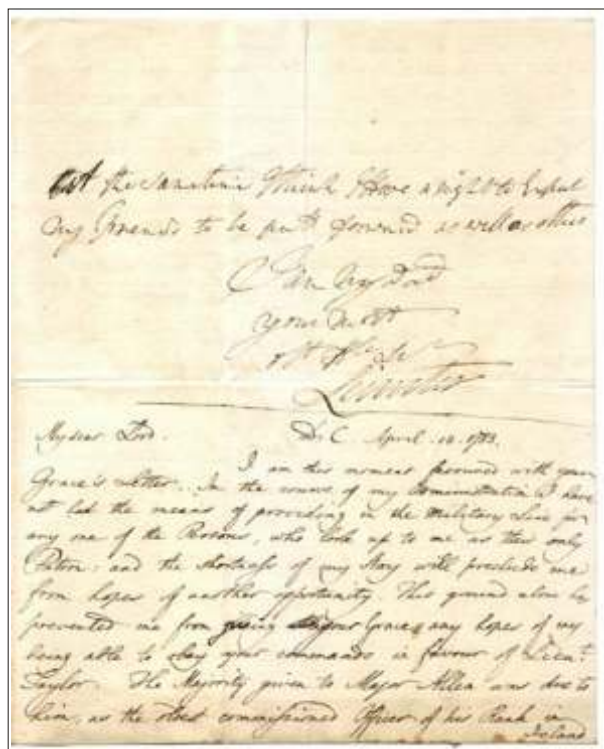 at the same time I think I Have a right to Expect
My Friends to be putt forward as well as others
I am My Lord
your most
obt Hble Sert
Leinster
My dear Lord. D. C. April. 12. 1783.
I am this moment favoured with your
Grace's Letter. In the course of my Administration I have
not had the means of providing in the Military Line for
any one of the Persons, who look up to me as their only
Patron: and the shortness of my Stay will preclude me
from hopes of another opportunity. This ground alone has
prevented me from giving your Grace any hopes of my
being able to obey your commands in favour of Lieut.
Taylor. The Majority given to Major Allen was due to
him, as the oldest commissioned Officer of his Rank in
Ireland